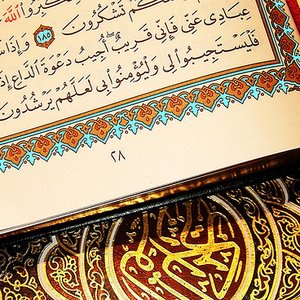 كم تشكرون ١٨٥ وإذا
عِبَادِي عَنِّي فَإِنِّي قَرِيبٌ أُجِيبُ دَعْوَةَ الدَّاعِ
فَلْيَسْتَجِيبُوا لِي وَلْيُؤْمِنُوا بِي لَعَلَّهُمْ يَرْشُدُونَ
٢٨